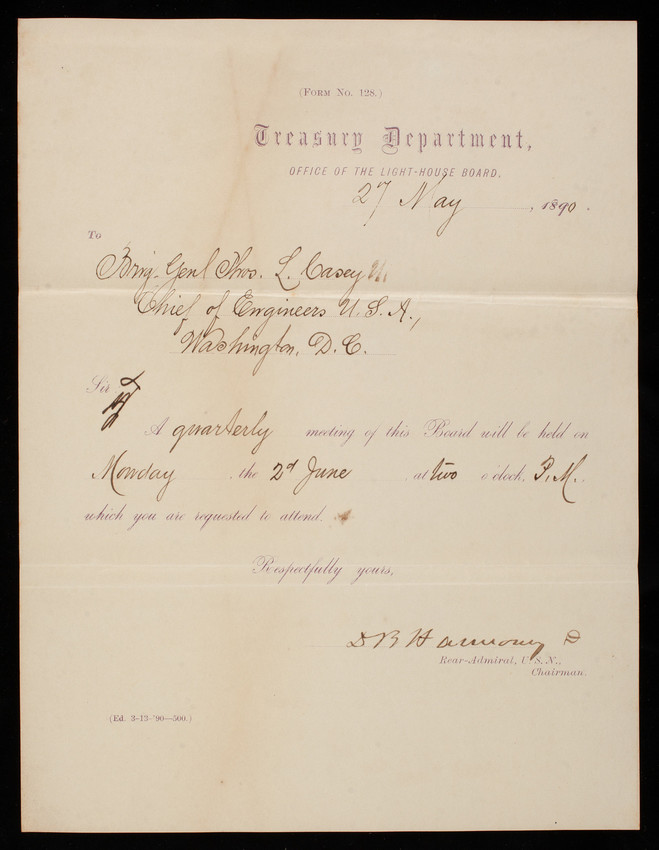 (FORM NO. 128.)
Treasury Department,
OFFICE OF THE LIGHT-HOUSE BOARD,
27 May, 1890.
To
Brig. Genl Thos. L. Casey
Chief of Engineers U.S.A.,
Washington, D.C.
Sir
A quarterly meeting of this Board will be held on
Monday, the 2d June at two o'clock, P.M.,
which you are requested to attend.
Respectfully yours,
D B Harmony
Rear-Admiral, U.S.N.,
Chairman.
(Ed. 3-13-'90—500.)